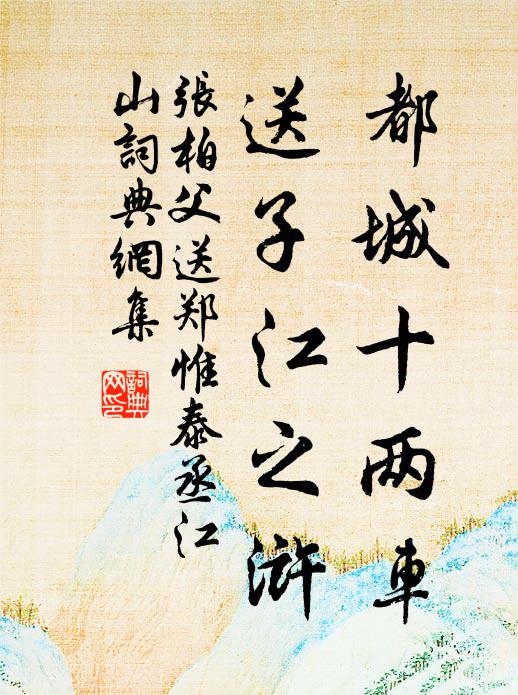 都城十两車
送子江之滸
張柏父送郑惟泰丞江
山詞典網集
詞典
网印